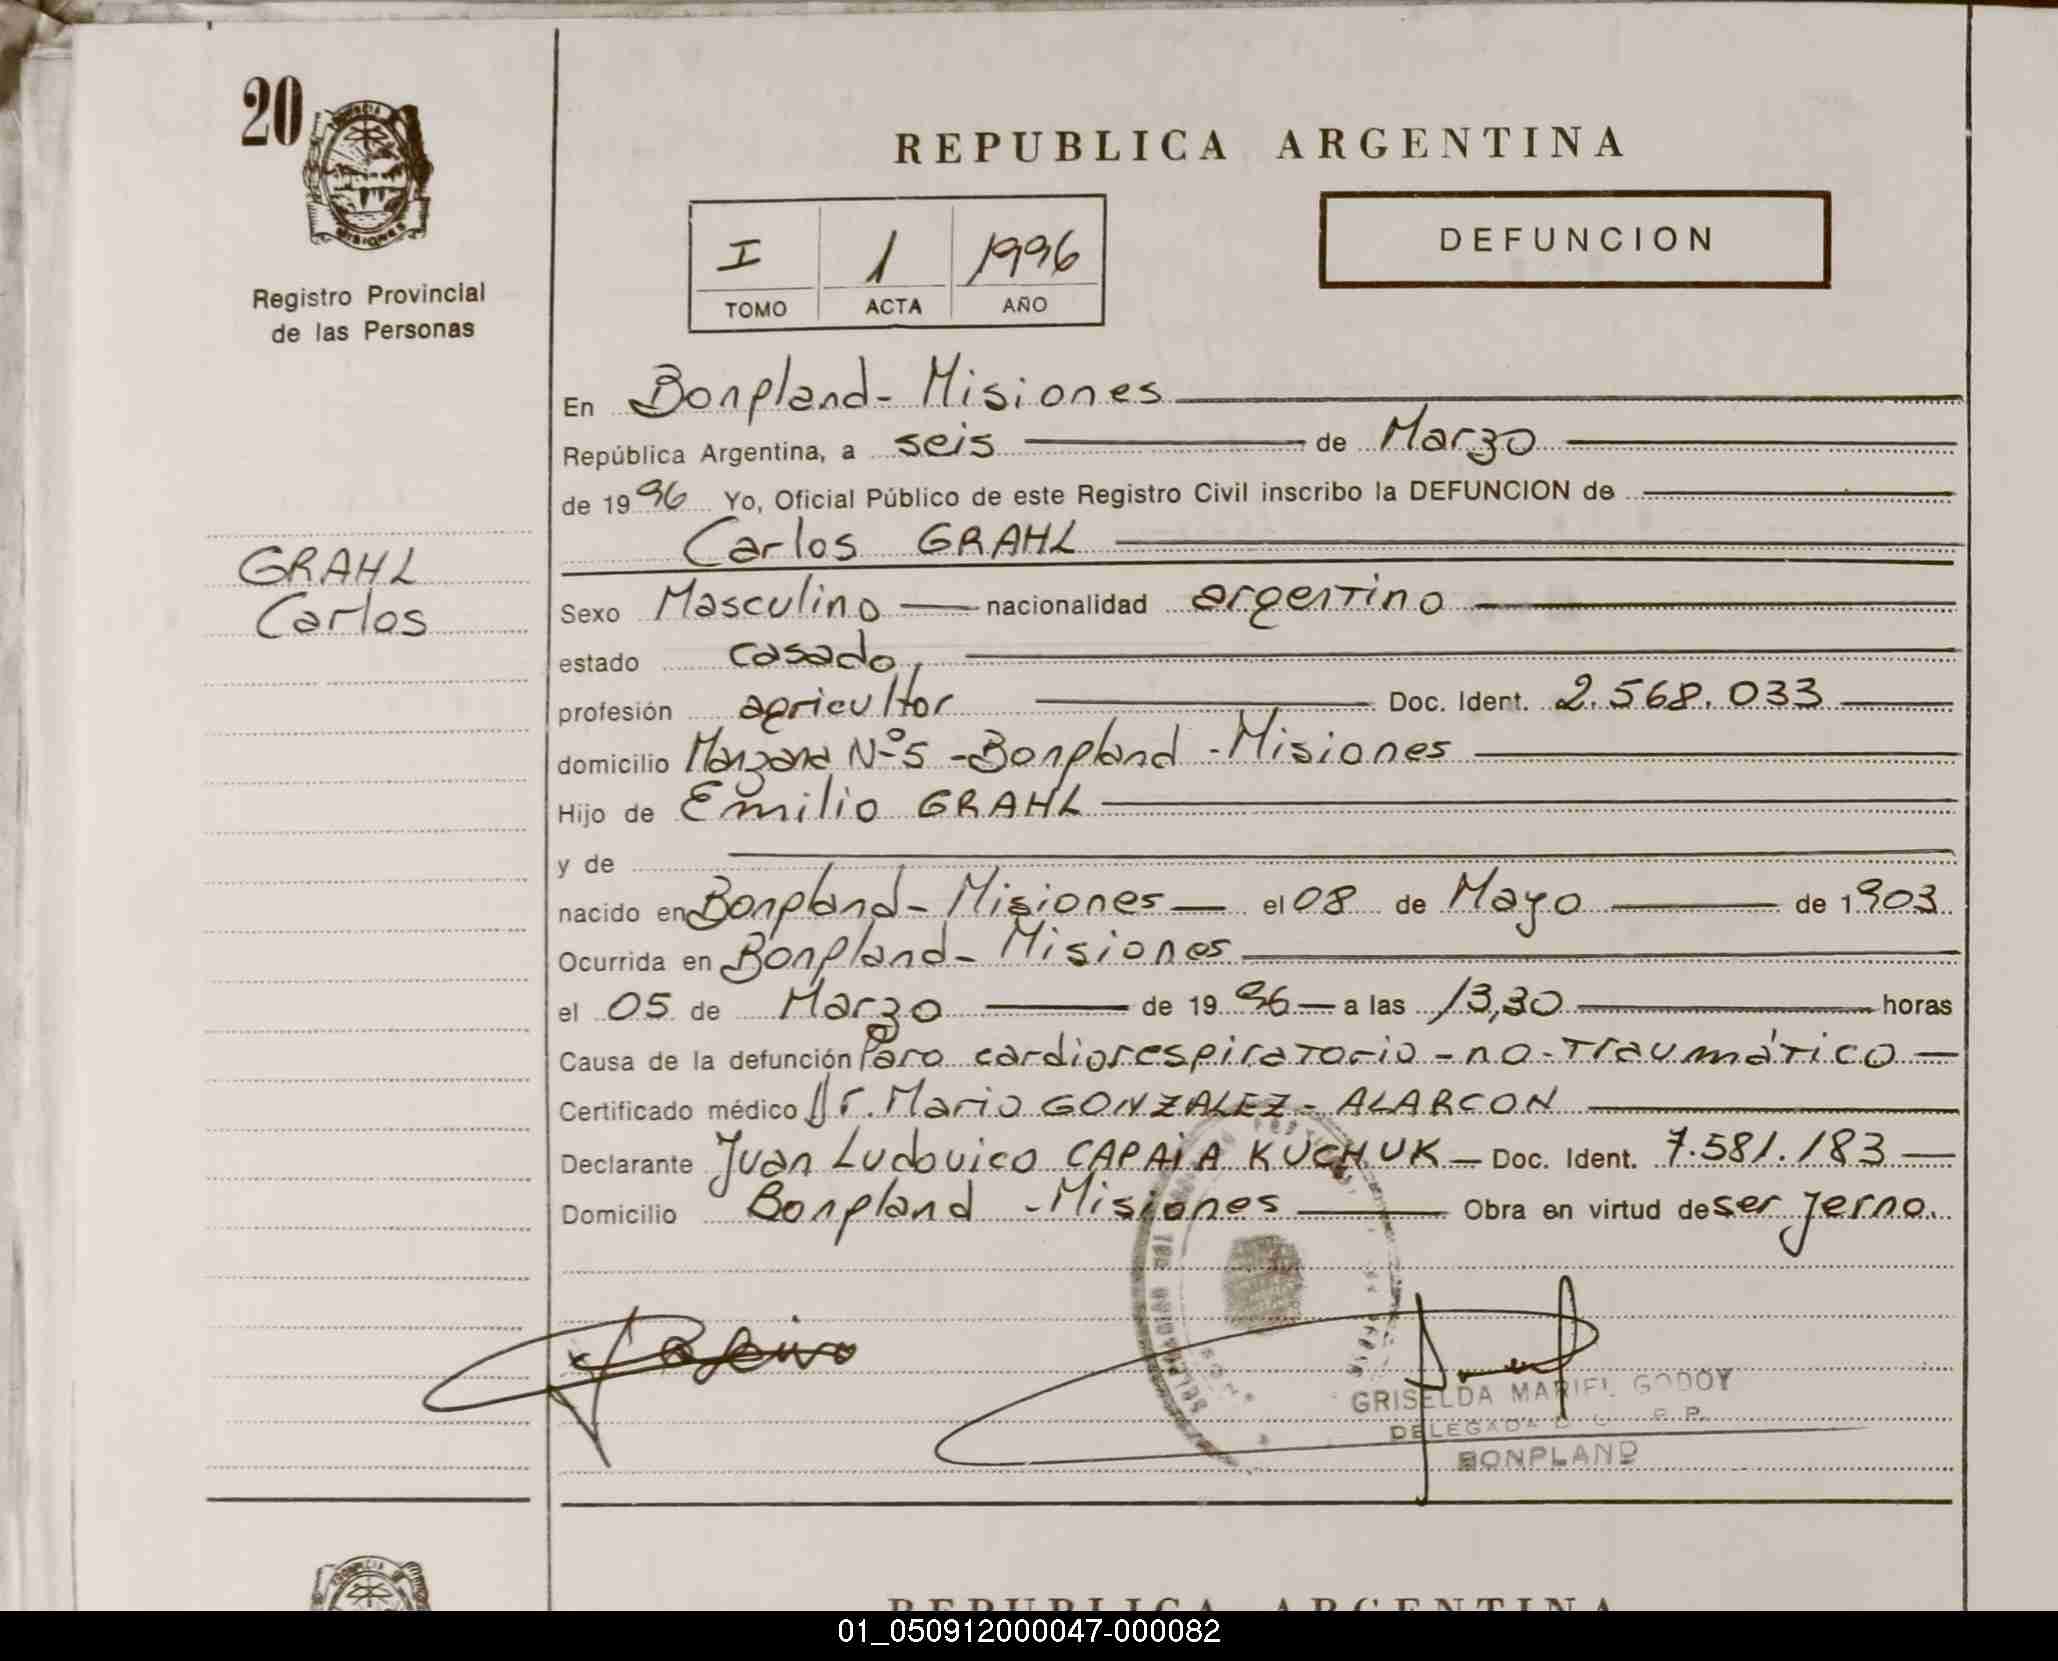 20
PROVINCIA
MISIONES
Registro Provincial
de las Personas
GRAHL
Carlos
REPUBLICA ARGENTINA
I 1 1996
TOMO ACTA AÑO
DEFUNCION
En Bonpland - Misiones
República Argentina, a seis de Marzo
de 1996 Yo, Oficial Público de este Registro Civil inscribo la DEFUNCION de
Carlos GRAHL
Sexo Masculino nacionalidad argentino
estado casado
profesión agricultor Doc. Ident. 2.568.033
domicilio Manzana Nº 5 - Bonpland - Misiones
Hijo de Emilio GRAHL
y de
nacido en Bonpland - Misiones el 08 de Mayo de 1903
Ocurrida en Bonpland - Misiones
el 05 de Marzo de 1996 a las 13,30 horas
Causa de la defunción Paro cardiorespiratorio - no - traumático
Certificado médico Dr. Mario GONZALEZ - ALARCON
Declarante Juan Ludovico CAPAIA KUCHUK Doc. Ident. 7.581.183
Domicilio Bonpland - Misiones Obra en virtud de ser yerno.
GRISELDA MARIEL GODOY
DELEGADA
BONPLAND
REPUBLICA ARGENTINA
01_050912000047-000082